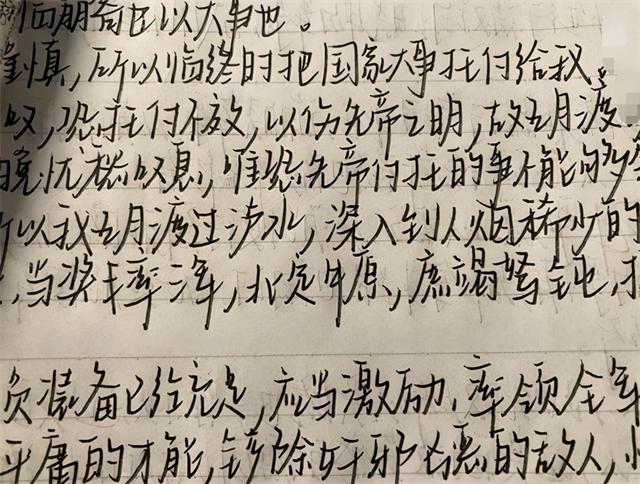 临崩寄臣以大事也。
谨慎,所以临终时把国家大事托付给我。
叹,恐托付不效,以伤先帝之明,故五月渡
晚忧愁叹息,唯恐先帝付托的事不能够
所以我五月渡过泸水,深入到人烟稀少的
,当奖率三军,北定中原,庶竭驽钝,
员装备已经充足,应当激励、率领全军
平庸的才能,铲除奸邪凶恶的敌人,